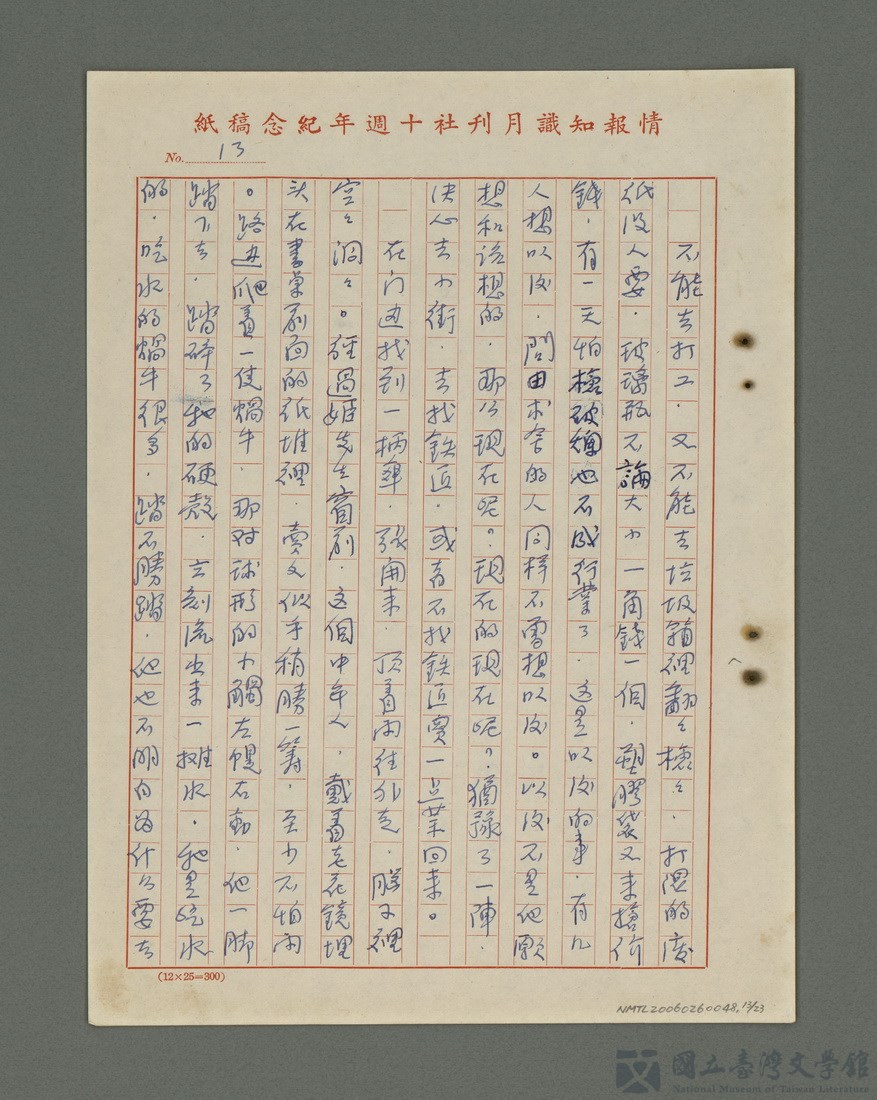 情報知識月刊社十週年紀念稿紙
No. 13
不能去打工．又不能去垃圾箱裡翻々檢々．打濕的廢
纸没人要．玻璃瓶不論大小一角錢一個．塑膠袋又来搶价
錢．有一天怕檢破爛也不成行業了．这是以後的事．有几
人想以後．問田求舍的人同样不需想以後。以後不是他願
想和該想的．那么現在呢？現在的現在呢？猶豫了一陣．
决心去小街．去找鉄匠．或者不找鉄匠買一点菜回来。
在门边找到一柄傘．張開来．頂着雨往外走．腦子裡
空々洞々。經過姬先生窗前．这個中年人，戴着老花鏡埋
头在書桌前面的纸堆裡．賣文似乎稍勝一籌．至少不怕雨
。路边爬着一隻蝸牛．那对球形的小觸左幌右動．他一脚
踏下去．踏碎了牠的硬殼．立刻流出来一摊水．牠是吃水
的．吃水的蝸牛很多．踏不勝踏．他也不明白為什么要去
(12×25=300)
NMTL20060260048, 13/23
國立臺灣文學館
National Museum of Taiwan Literature